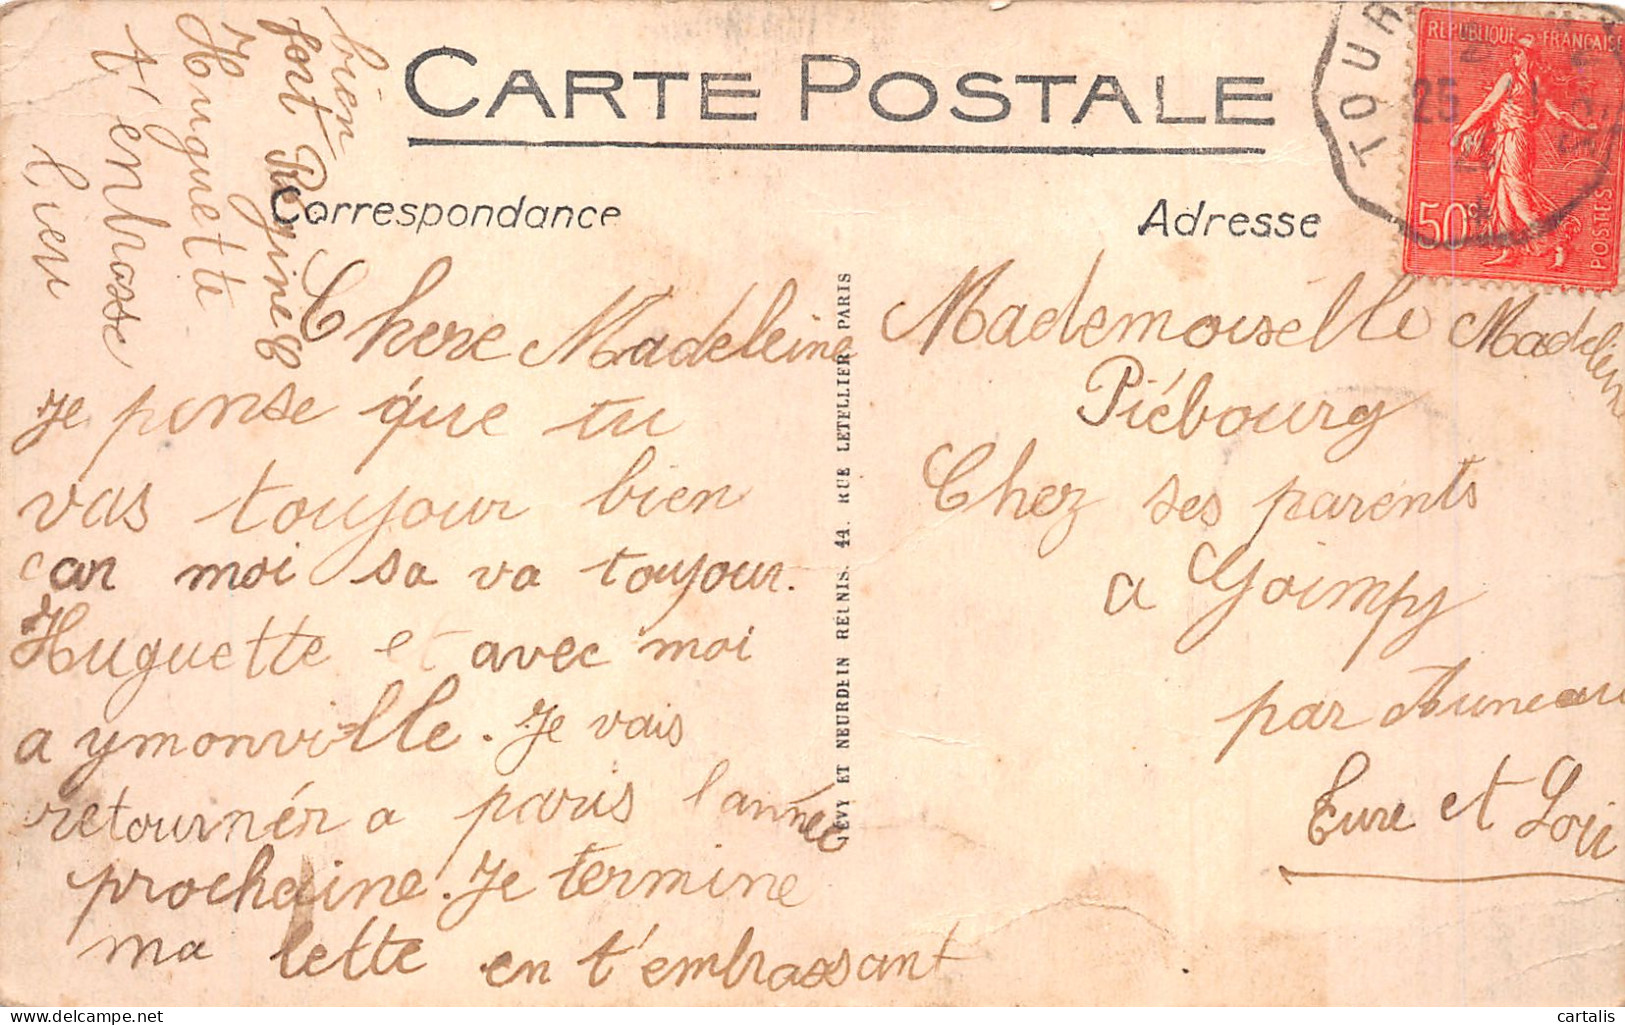 CARTE POSTALE
Correspondance
Adresse
TOUR
25
REPUBLIQUE FRANÇAISE
50c
POSTES
Chere Madeleine
Je pense que tu
vas toujour bien
car moi sa va toujour.
Huguette et avec moi
a ymonville. Je vais
retournér a paris l'année
prochaine. Je termine
ma lette en t'embrassant
bien
fort Regine C
Huguette
t'embrasse
bien
LEVY ET NEURDEIN REUNIS. 44. RUE LETELLIER PARIS
Mademoiselle Madeleine
Piébourg
Chez ses parents
a Goimpy
par Auneau
Eure et Loir
cartalis